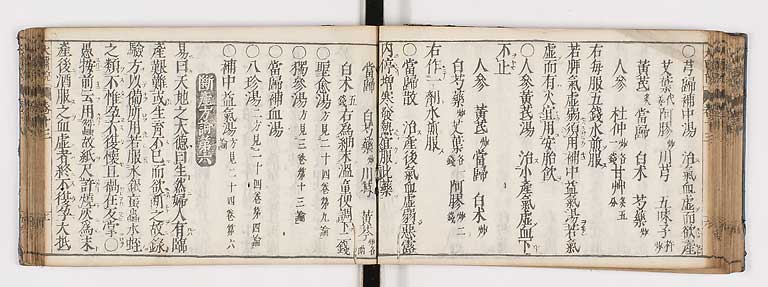 ○芎歸補中湯 治氣血虛而欲產
艾葉代 阿膠炒 川芎 五味子杵
黃芪炙 當歸 白朮炒 芍藥炒
人參 杜仲炒各一錢 甘艸炙五
右每服五錢水煎服
若脾氣虛弱須用補中益氣湯若氣
虛而有火宜用安胎飲
○人參黃芪湯 治小產氣虛血下
不止
人參 黃芪炒 當歸 白朮炒
白芍藥炒 艾葉各一錢 阿膠炒二
右作一劑水煎服
○當歸散 治產後氣血虛弱惡露
內停增寒發熱宜服此藥
當歸 白芍藥 川芎 黃芩炒各
白朮五錢 右為細末溫童便調下二錢
○聖愈湯方見二十四卷第九論
○獨參湯方見三卷第十三論
○當歸補血湯
○八珍湯二方見二十四卷第四論
○補中益氣湯方見二十四卷第六
斷產方論第六
易曰天地之大德曰生然婦人有臨
產艱難或生育不已而欲斷之故錄
驗方以備所用若服水銀蝱蟲水蛭
之類不惟孕不復懷且禍在反掌○
愚按前云用蠶故紙尺許燒灰為末
產後酒服之血虛者終不復孕大抵